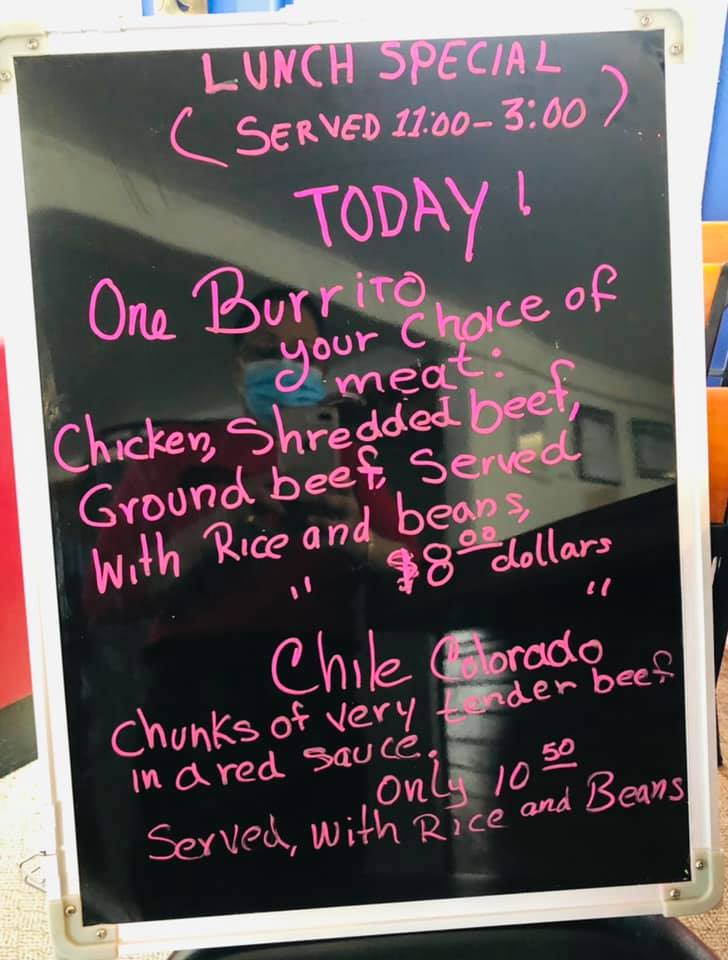 LUNCH SPECIAL
( SERVED 11:00 - 3:00 )
TODAY !
One Burrito
your Choice of
meat:
Chicken, Shredded beef,
Ground beef, Served
With Rice and beans,
" $8.00 dollars "
Chile Colorado
Chunks of very tender beef
in a red sauce.
Only 10 50
Served, With Rice and Beans